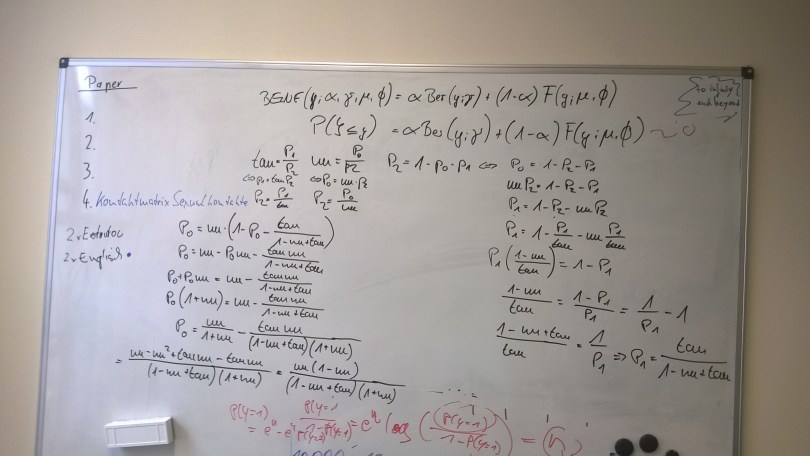 Paper
1.
2.
3.
4. Kontaktmatrix Sexualkontakte
2. 
2. Englisch
to infinity and beyond
BEINF(y; α, γ, μ, ϕ) = α Ber(y;γ) + (1-α) F(y;μ,ϕ)
P(Y ≤ y) = α Ber(y;γ) + (1-α) F(y;μ,ϕ)
tau = P1/P2 nu = P0/P2 P2 = 1-P0-P1 ⇔ P0 = 1-P2-P1
⇔ P1 = tau P2 ⇔ P0 = nu·P2
P2 = P1/tau P2 = P0/nu
nu P2 = 1-P2-P1
P1 = 1-P2-nu P2
P1 = 1-P1/tau-nu P1/tau
P1((1-nu)/tau) = 1-P1
(1-nu)/tau = (1-P1)/P1 = 1/P1 - 1
(1-nu+tau)/tau = 1/P1 ⇒ P1 = tau/(1-nu+tau)
P0 = nu·(1-P0-tau/(1-nu+tau))
P0 = nu-P0nu-tau nu/(1-nu+tau)
P0+P0nu = nu-tau nu/(1-nu+tau)
P0(1+nu) = nu-tau nu/(1-nu+tau)
P0 = nu/(1+nu)-tau nu/((1-nu+tau)(1+nu))
= (nu-nu²+tau nu-tau nu)/((1-nu+tau)(1+nu)) = nu(1-nu)/((1-nu+tau)(1+nu))
P(y=1)
log(P(y=1)/(1-P(y=1))) = η